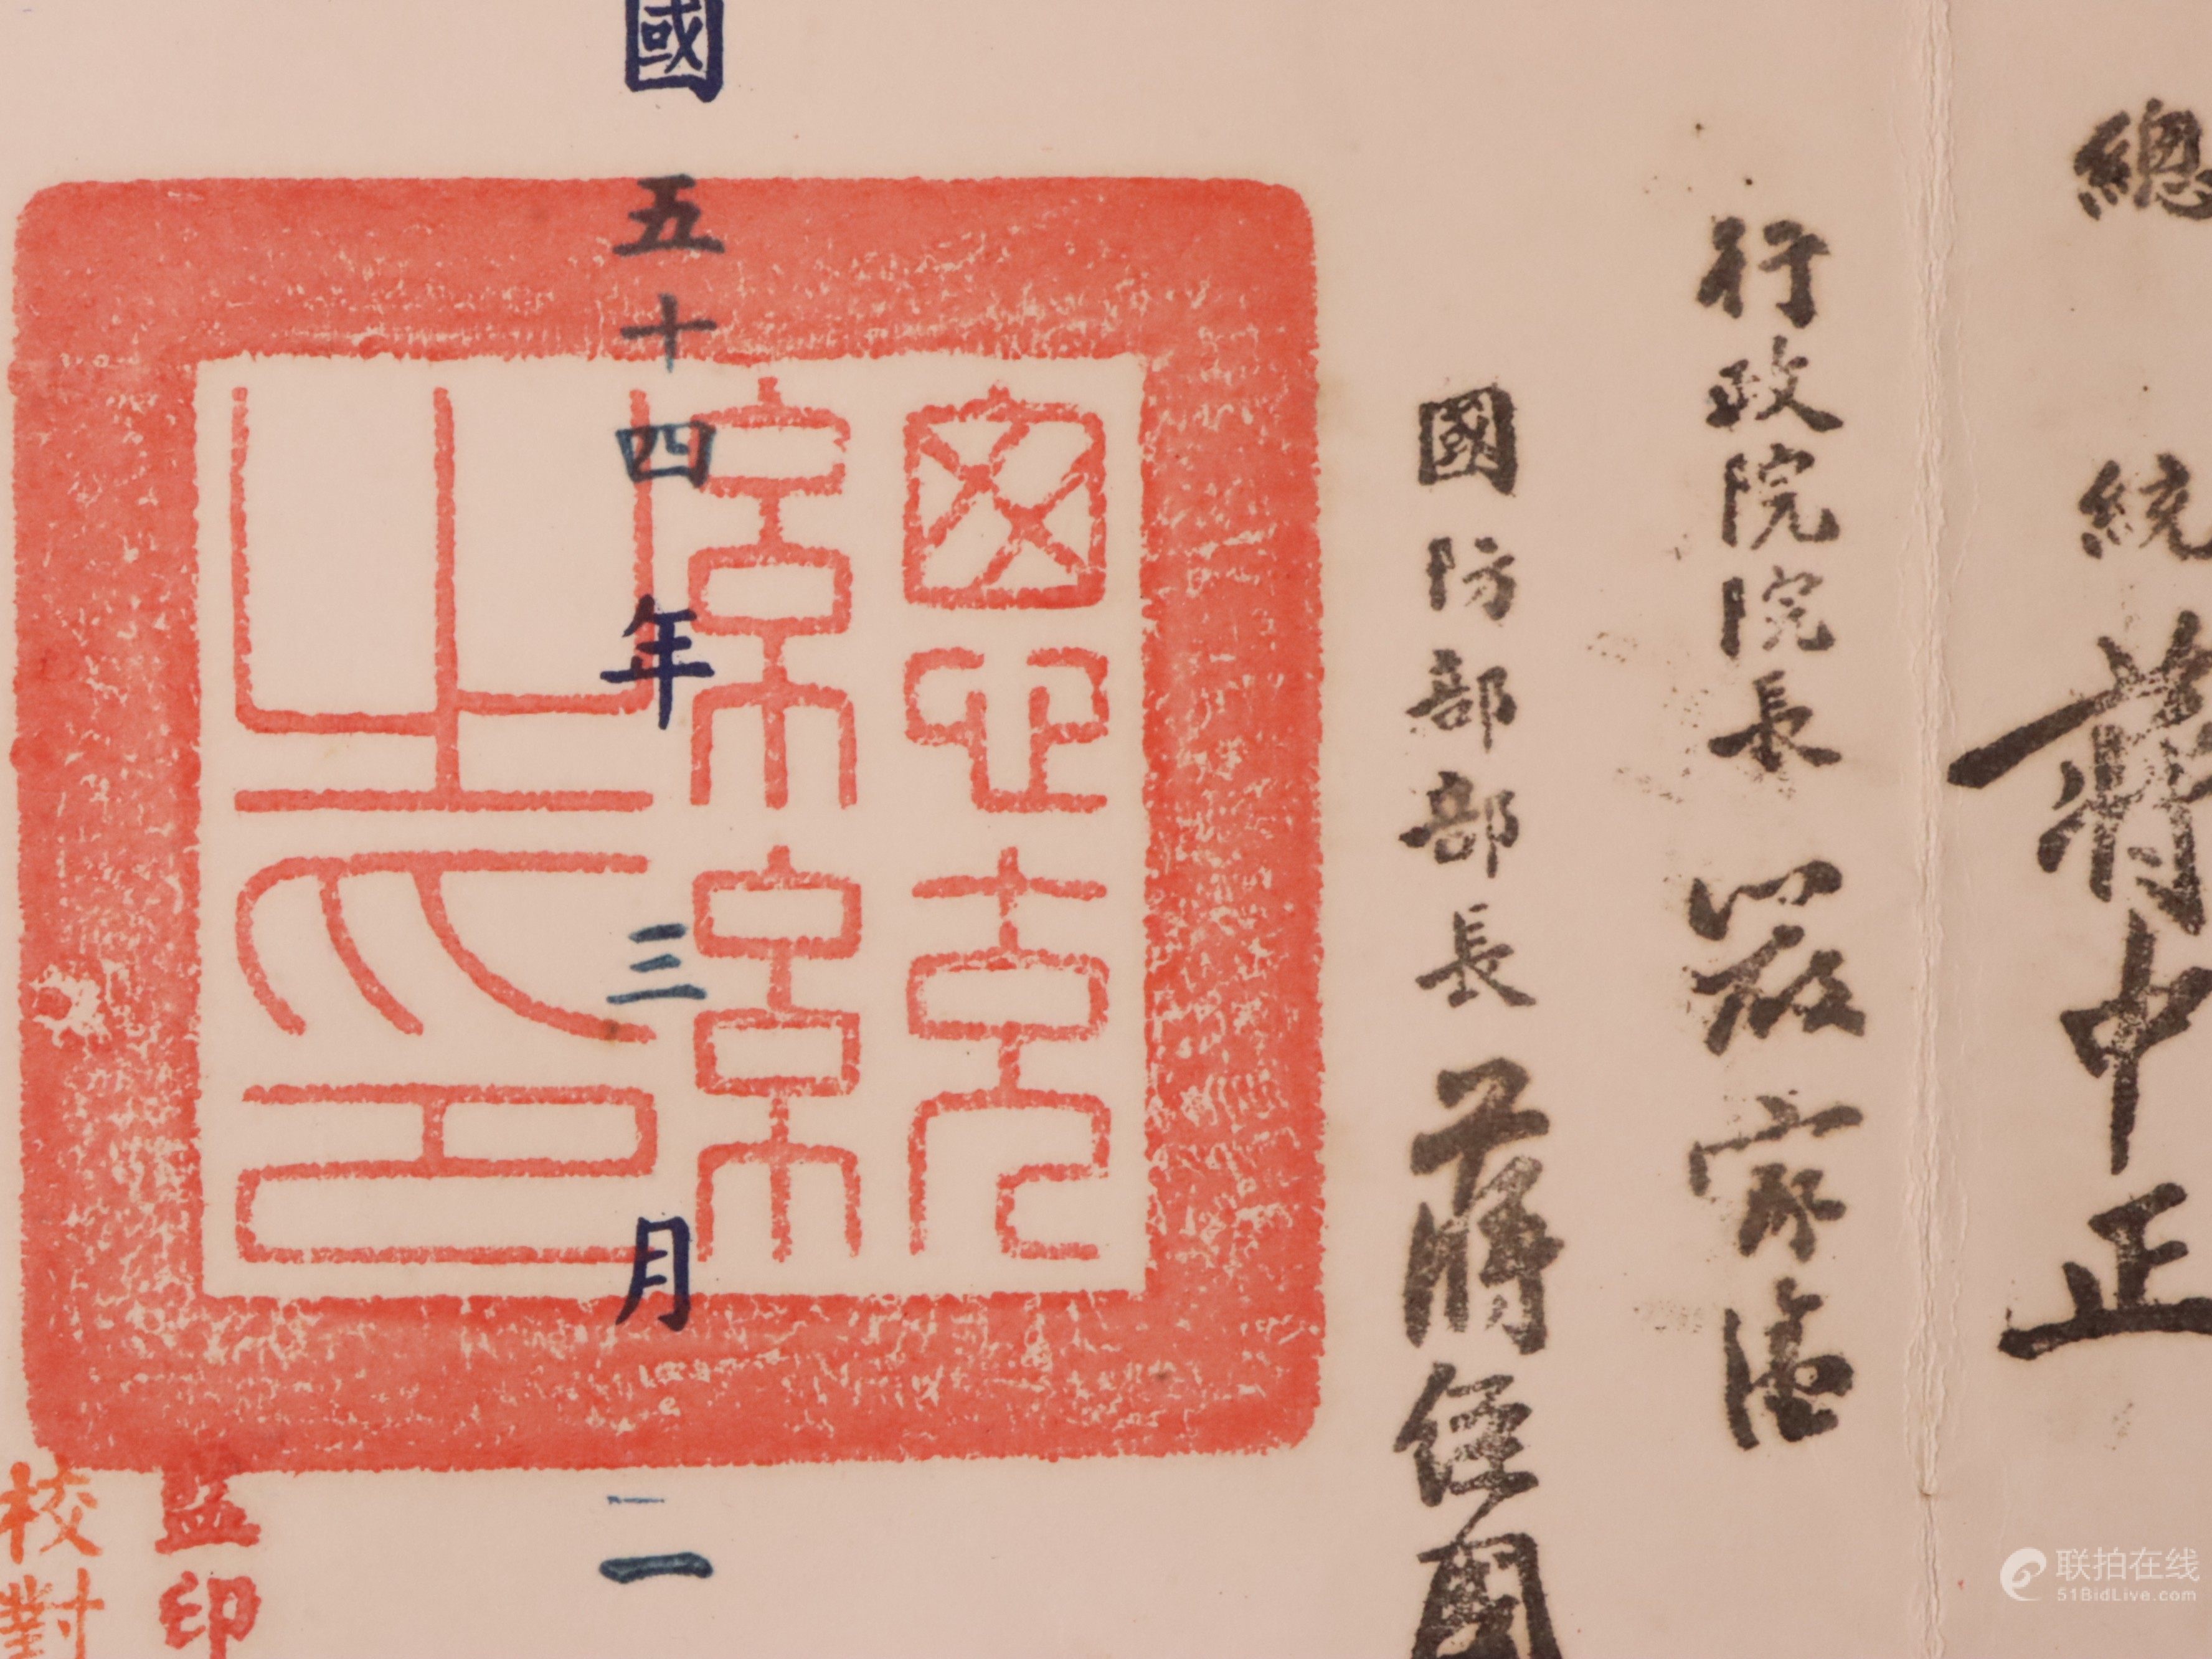 總統蔣中正
行政院院長嚴家淦
國防部部長蔣經國
總統之印
國五十四年三月二
監印
校對
联拍在线
51BidLive.com